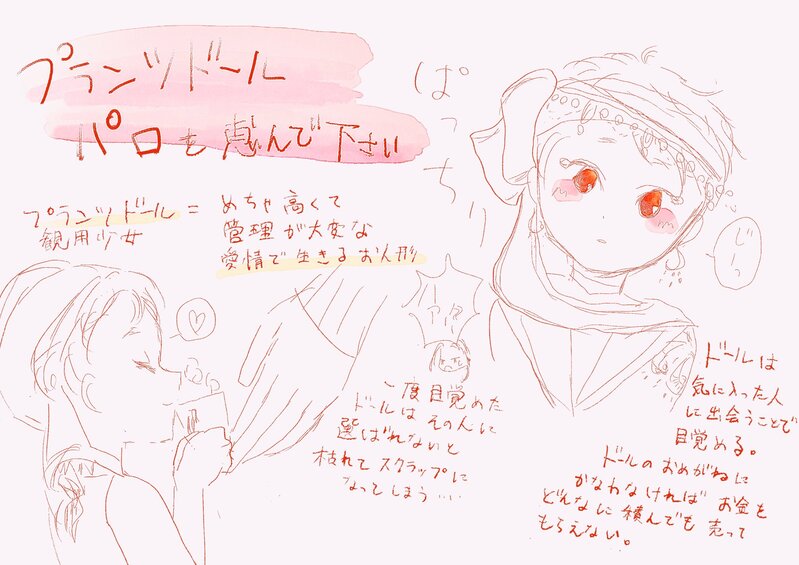 プランツドール
パロを恵んで下さい
ぱっちり
プランツドール
観用少女
=
めちゃ高くて
管理が大変な
愛情で生きるお人形
じーっ
一度目覚めた
ドールはその人に
選ばれないと
枯れてスクラップに
なってしまう……
ドールは
気に入った人
に出会うことで
目覚める。
ドールのおめがねに
かなわなければお金を
どんなに積んでも売って
もらえない。